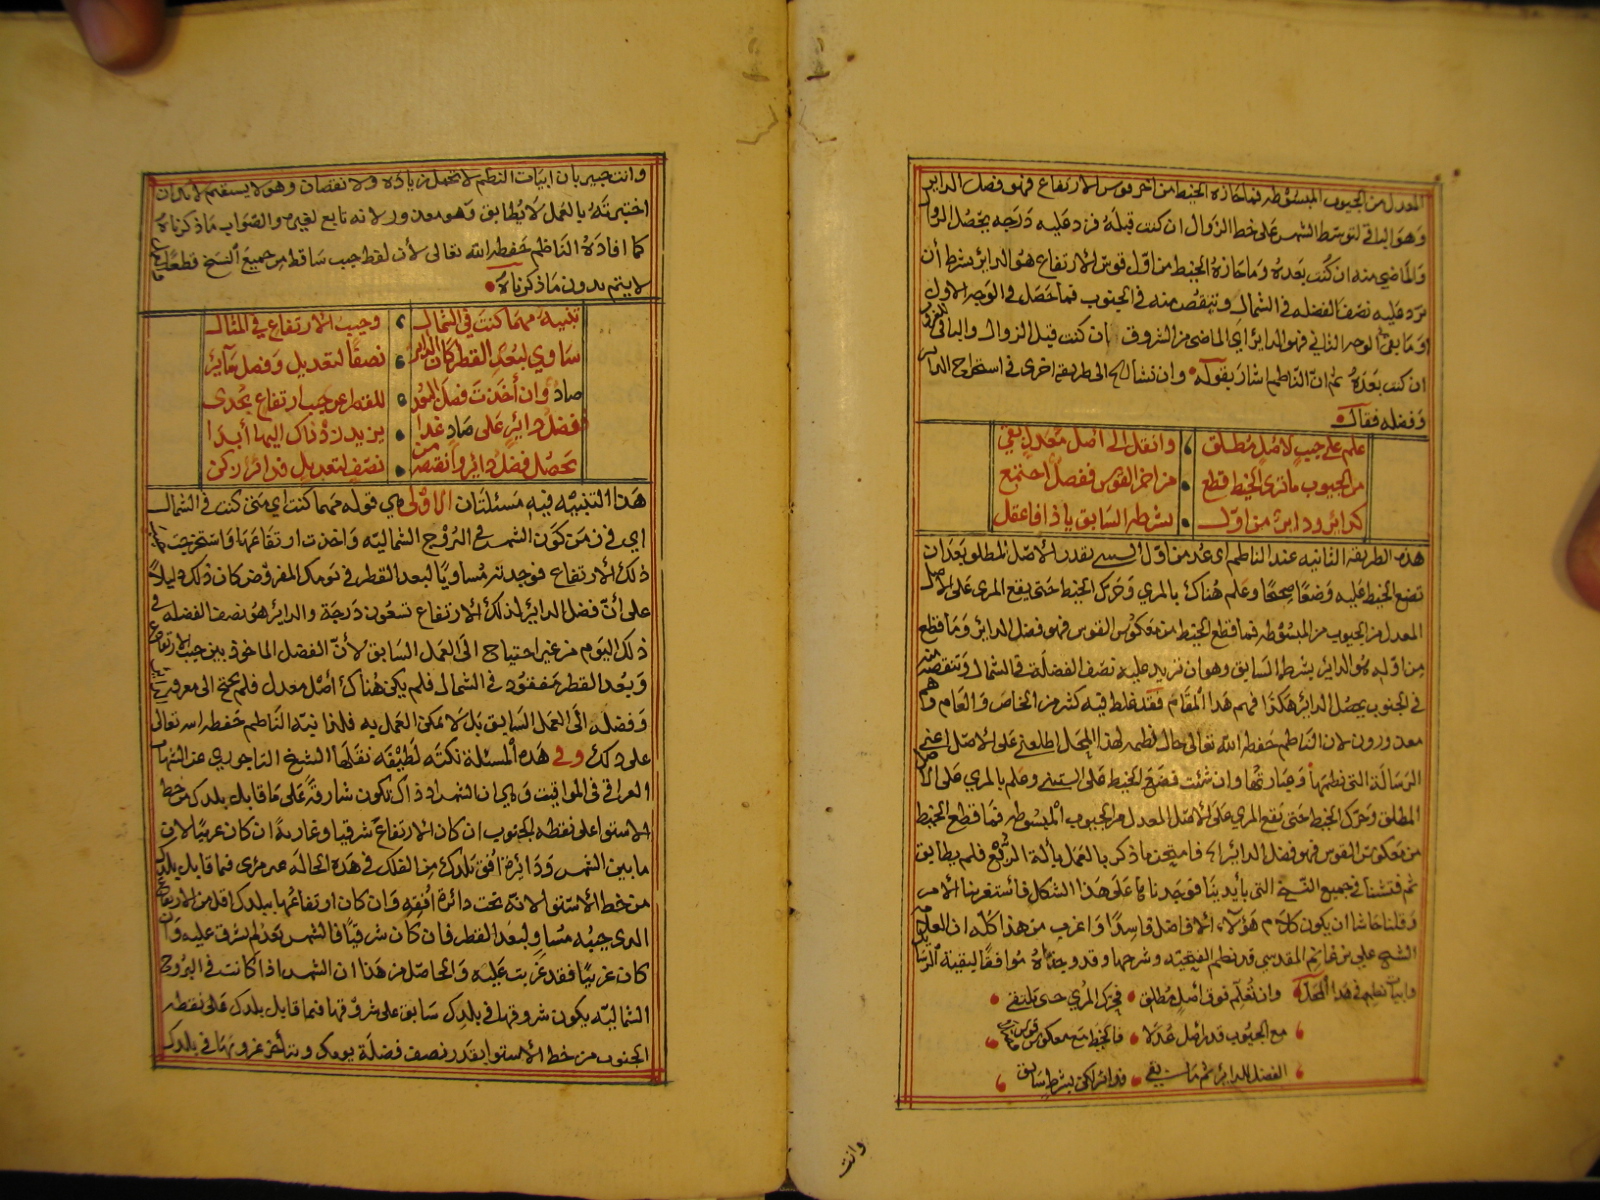 المعدل من الجيوب المبسوطه فما حازه الخيط من اخر قوس الارتفاع فهو فضل الداير
وهو الباقي لتوسط الشمس على خط الزوال ان كنت قبله فزد عليه درجه يحصل الزوال
والماضي منه ان كنت بعده وما حازه الخيط من اول قوس الارتفاع هو الدائر بشرط أن
تزد عليه نصف الفضله في الشمال وتنقص منه في الجنوب فما حصل في الوجه الاول
وما بقي في الوجه الثاني فهو الدائر اي الماضي من الشروق ان كنت قبل الزوال والباقي للغروب
ان كنت بعده ثم ان الناظم اشار بقوله وان تشا الخ الى طريقه اخرى في استخراج الداير
وفضله فقال
علم على جيب لاصل مطلق وانقل الى اصل معدل يقي
من الجيوب ما ترى الخيط قطع من اخر القوس ففضل اجتمع
كدائر ودائر من اول بشرطه السابق يا ذا فاعقل
هذه الطريقه الثانيه عند الناظم اي عد من اول الستيني بقدر الاصل المطلق بعد ان
تضع الخيط عليه وضعا صحيحا وعلم هناك بالمري وحرك الخيط حتى يقع المري على الاصل
المعدل من الجيوب من المبسوطه فما قطع الخيط من معكوس القوس فهو فضل الدائر وما قطع
من اوله هو الداير بشرطه السابق وهو ان تزيد عليه نصف الفضلة في الشمال وتنقصه منه
في الجنوب يحصل الداير هكذا فهم هذا المقام فقد غلط فيه كثير من الخاص والعام وهم
معذورون لان الناظم حفظه الله تعالى حال نظمه لهذا المحل اطلعني على الاصل اعني
الرسالة التي نظمها وعبارتها وان شئت فضع الخيط على الستيني وعلم بالمري على الاصل
المطلق وحرك الخيط حتى يقع المري على الاصل المعدل من الجيوب المبسوطه فما قطع الخيط
من معكوس القوس فهو فضل الدائر فامتحنا ما ذكر بالعمل بآلة الربع فلم يطابق
ثم فتشنا في جميع النسخ التي بأيدينا فوجدناها على هذا الشكل فاستغربنا الامر
وقلنا حاشا ان يكون كلام هؤلاء الافاضل فاسدا واغرب من هذا كله ان العلامة
الشيخ علي بن غانم المقدسي قد نظم الفتحيه وشرحها وقد وجدناه موافقا لبقية الرسائل
وابيات نظمه في هذا المحل وان تعلم فوق اصل مطلق فحرك المري حتى يلتقي
مع الجيوب قدر اصل عدلا فالخيط مع معكوس قوس
الفضل للداير ثم ما بقي فدائر لكن بشرط سابق
وانت
وانت خبير بان ابيات النظم لا تحمل زيادة ولا نقصان وهو لا يستقيم لانه ان
اختبرته بالعمل لا يطابق وهو معذور لانه تابع لغيره والصواب ما ذكرناه
كما افاده الناظم حفظه الله تعالى لأن لفظ جيب ساقط من جميع النسخ قطعا
لا يتم بدون ما ذكرناه
تنبيه مهما كنت في الشمال وجيب الارتفاع في المثال
ساوي لبعد القطر كان الداير نصفا لتعديل وفضل عآير
صاد وان أخذت فضل البعد للقطر عن جيب ارتفاع يجدى
ففضل داير على صاد غدا يزيد ذاك اليها أبدا
تحصل فضل دائر وانقصه من نصف لتعديل فدائر زكن
هذا التنبيه فيه مسئلتان الاولى هي قوله مهما كنت اي متى كنت في الشمال
اي في زمن كون الشمس في البروج الشماليه واخذت ارتفاعها واستخرجت جيب
ذلك الارتفاع فوجدته مساويا لبعد القطر في يومك المفروض كان ذلك دليلا
على أن فضل الداير لذلك الارتفاع تسعون درجة والداير هو نصف الفضله في
ذلك اليوم من غير احتياج الى العمل السابق لأن الفضل الماخوذ بين جيب الارتفاع
وبعد القطر مفقود في الشمال فلم يكن هناك أصل معدل فلم يحتج الى معرفة
وفضله الى العمل السابق بل لا يمكن العمل به فلذا نبه الناظم حفظه الله تعالى
على ذلك وفي هذه المسئلة نكتة لطيفة نقلها الشيخ التاجوري عن الشهاب
العراقي في المواقيت وهي ان الشمس اذ ذاك تكون شارقة على ما قابل بلدك من خط
الاستوا على نقطه الجنوب ان كان الارتفاع شرقيا وغاربة ان كان غربيا لان
ما بين الشمس ودائرة افق بلدك من الفلك في هذه الحاله غير مرئى فما قابل بلدك
من خط الاستوا لانه تحت دائرة افقه وان كان ارتفاعها ببلدك اقل من الارتفاع
الذي جيبه مساو لبعد القطر فان كان شرقيا فالشمس بعد لم تشرق عليه وان
كان غربيا فقد غربت عليه والحاصل من هذا ان الشمس اذا كانت في البروج
الشماليه يكون شروقها في بلدك سابق على شروقها فيما قابل بلدك على نقطه
الجنوب من خط الاستوا بقدر نصف فضلة يومك ويتأخر غروبها في بلدك